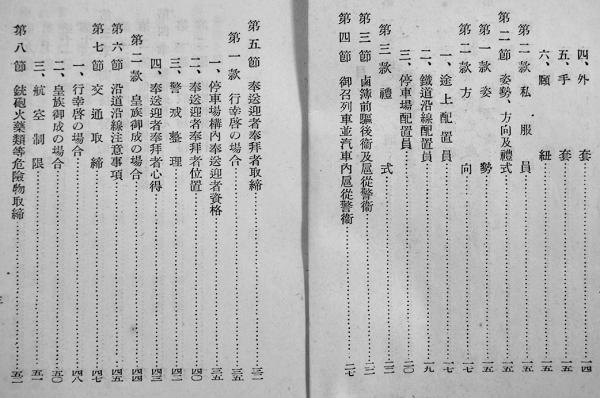 四、外套……一四
五、手套……一五
六、顎紐……一五
第二款 私服員……一五
第二節 姿勢、方向及禮式……一五
第一款 姿勢……一五
第二款 方向……一七
一、途上配置員……一七
二、鐵道沿線配置員……一九
三、停車場配置員……二〇
第三款 禮式……二二
第三節 鹵簿前驅後衞及扈從警衞……二三
第四節 御召列車並汽車內扈從警衞……二七
第五節 奉送迎者奉拜者取締……三一
第一款 行幸啓の場合……三五
一、停車場構內奉送迎者資格……三五
二、奉送迎者奉拜者位置……四〇
三、警戒整理……四二
四、奉送迎者奉拜者心得……四三
第二款 皇族御成の場合……四四
第六節 沿道沿線注意事項……四五
第七節 交通取締……四七
一、行幸啓の場合……四八
二、皇族御成の場合……五〇
三、航空制限……五一
第八節 銃砲火藥類等危險物取締……五二